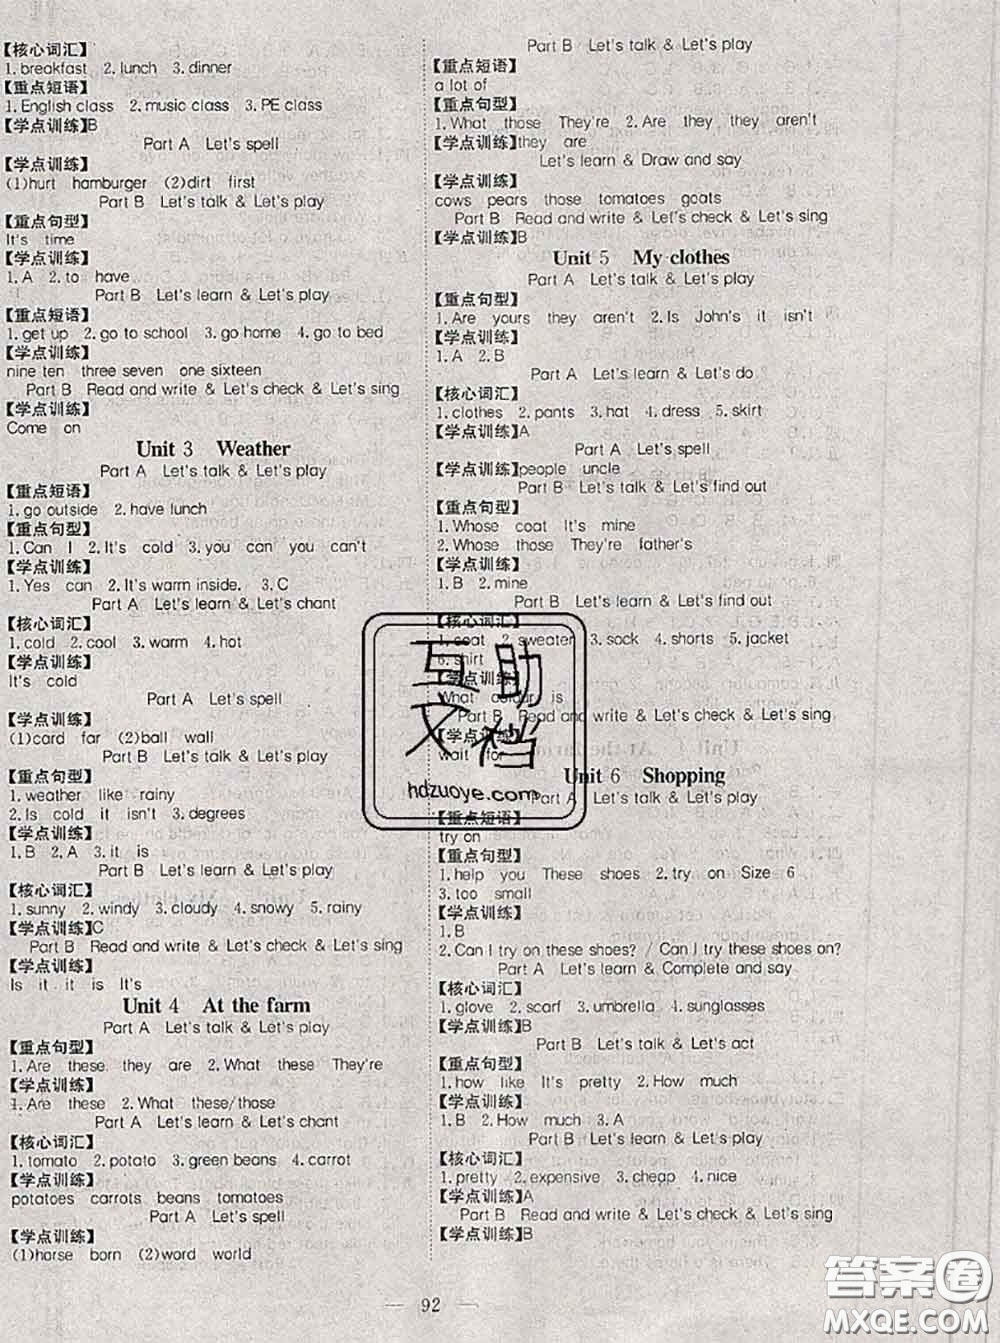 【核心词汇】
1. breakfast 2. lunch 3. dinner
【重点短语】
1. English class 2. music class 3. PE class
【学点训练】B
Part A Let's spell
【学点训练】
(1)hurt hamburger (2)dirt first
Part B Let's talk & Let's play
【重点句型】
It's time
【学点训练】
1. A 2. to have
Part B Let's learn & Let's play
【重点短语】
1. get up 2. go to school 3. go home 4. go to bed
【学点训练】
nine ten three seven one sixteen
Part B Read and write & Let's check & Let's sing
【学点训练】
Come on
Unit 3 Weather
Part A Let's talk & Let's play
【重点短语】
1. go outside 2. have lunch
【重点句型】
1. Can I 2. It's cold 3. you can you can't
【学点训练】
1. Yes can 2. It's warm inside. 3. C
Part A Let's learn & Let's chant
【核心词汇】
1. cold 2. cool 3. warm 4. hot
【学点训练】
It's cold
Part A Let's spell
【学点训练】
(1)card far (2)ball wall
Part B Let's talk & Let's play
【重点句型】
1. weather like rainy
2. Is cold it isn't 3. degrees
【学点训练】
1. B 2. A 3. it is
Part B Let's learn & Let's play
【核心词汇】
1. sunny 2. windy 3. cloudy 4. snowy 5. rainy
【学点训练】C
Part B Read and write & Let's check & Let's sing
【学点训练】
Is it it is It's
Unit 4 At the farm
Part A Let's talk & Let's play
【重点句型】
1. Are these they are 2. What these They're
【学点训练】
1. Are these 2. What these/those
Part A Let's learn & Let's chant
【核心词汇】
1. tomato 2. potato 3. green beans 4. carrot
【学点训练】
potatoes carrots beans tomatoes
Part A Let's spell
【学点训练】
(1)horse born (2)word world
Part B Let's talk & Let's play
【重点短语】
a lot of
【重点句型】
1. What those They're 2. Are they they aren't
【学点训练】they are
Let's learn & Draw and say
【学点训练】
cows pears those tomatoes goats
Part B Read and write & Let's check & Let's sing
【学点训练】B
Unit 5 My clothes
Part A Let's talk & Let's play
【重点句型】
1. Are yours they aren't 2. Is John's it isn't
【学点训练】
1. A 2. B
Part A Let's learn & Let's do
【核心词汇】
1. clothes 2. pants 3. hat 4. dress 5. skirt
【学点训练】A
Part A Let's spell
【学点训练】people uncle
Part B Let's talk & Let's find out
【重点句型】
1. Whose coat It's mine
2. Whose those They're father's
【学点训练】
1. B 2. mine
Part B Let's learn & Let's find out
【核心词汇】
1. coat 2. sweater 3. sock 4. shorts 5. jacket
6. shirt
【学点训练】
What colour is
Part B Read and write & Let's check & Let's sing
【学点训练】
wait for
Unit 6 Shopping
Part A Let's talk & Let's play
【重点短语】
try on
【重点句型】
1. help you These shoes 2. try on Size 6
3. too small
【学点训练】
1. B
2. Can I try on these shoes? / Can I try these shoes on?
Part A Let's learn & Complete and say
【核心词汇】
1. glove 2. scarf 3. umbrella 4. sunglasses
【学点训练】B
Part B Let's talk & Let's act
【重点句型】
1. how like It's pretty 2. How much
【学点训练】
1. B 2. How much 3. A
Part B Let's learn & Let's play
【核心词汇】
1. pretty 2. expensive 3. cheap 4. nice
【学点训练】A
Part B Read and write & Let's check & Let's sing
【学点训练】B
互助
文档
hdzuoye.com
— 92 —
答案圈
MXQE.COM